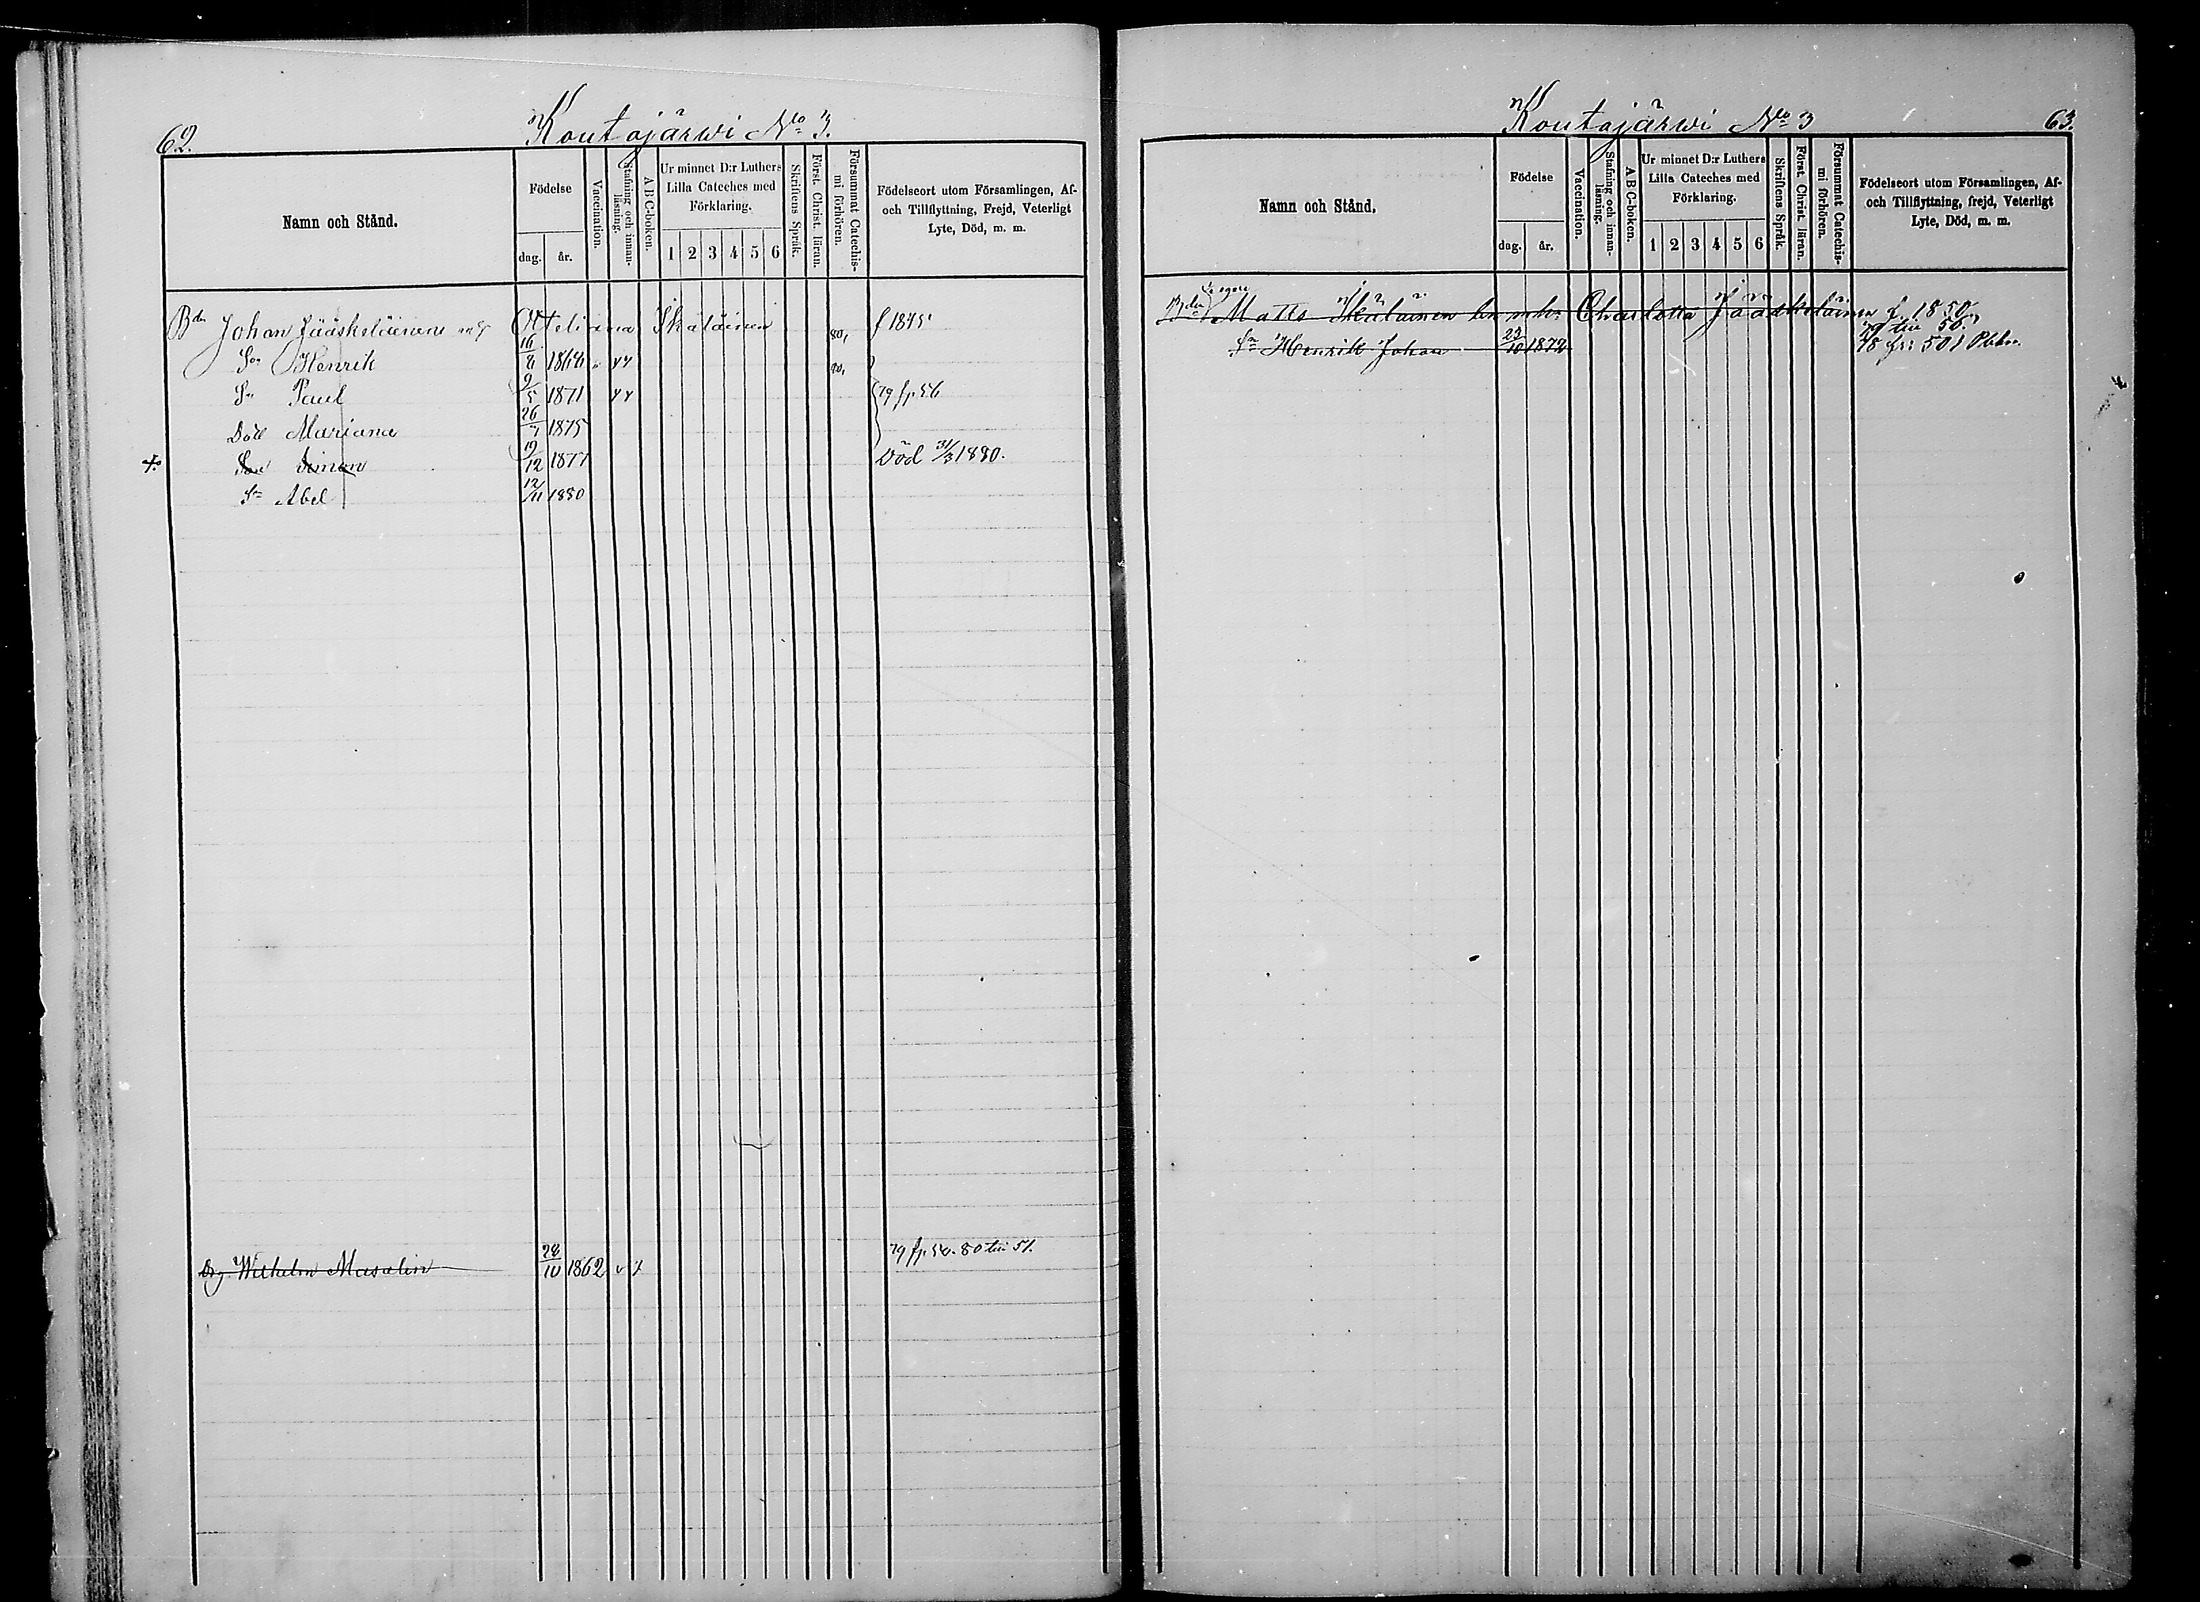 62.
Koutajärwi No 3.
Namn och Stånd.
Födelse
dag.
år.
Vaccination.
Stafning och innan-läsning.
A B C-boken.
Ur minnet D:r Luthers
Lilla Cateches med
Förklaring.
1 2 3 4 5 6
Skriftens Språk.
Först. Christ. läran.
Försummat Catechis-mi förhören.
Födelseort utom Församlingen, Af-
och Tillflyttning, Frejd, Veterligt
Lyte, Död, m. m.
Bdn Johan Jääskeläinen Otteliana Ikäläinen 80, f 1845
Son Henrik 16/8 1868 80,
Sn Paul 9/5 1871 79 fr 56
Dott Mariana 26/7 1875
Son Simon 19/12 1877 Död 31/3 1880.
Sn Abel 12/11 1880
Drg. Wilhelm Masalin 28/10 1862 79 fr 50. 80 till 51.
Koutajärwi No 3
63.
Namn och Stånd.
Födelse
dag.
år.
Vaccination.
Stafning och innan-läsning.
A B C-boken.
Ur minnet D:r Luthers
Lilla Cateches med
Förklaring.
1 2 3 4 5 6
Skriftens Språk.
Först. Christ. läran.
Försummat Catechis-mi förhören.
Födelseort utom Församlingen, Af-
och Tillflyttning, frejd, Veterligt
Lyte, Död, m. m.
Matts Ikäläinen Charlotta Jääskeläinen f. 1850
79 till 56.
Sn Henrik Johan 23/10 1872 78 fr: 501 Pbkn.